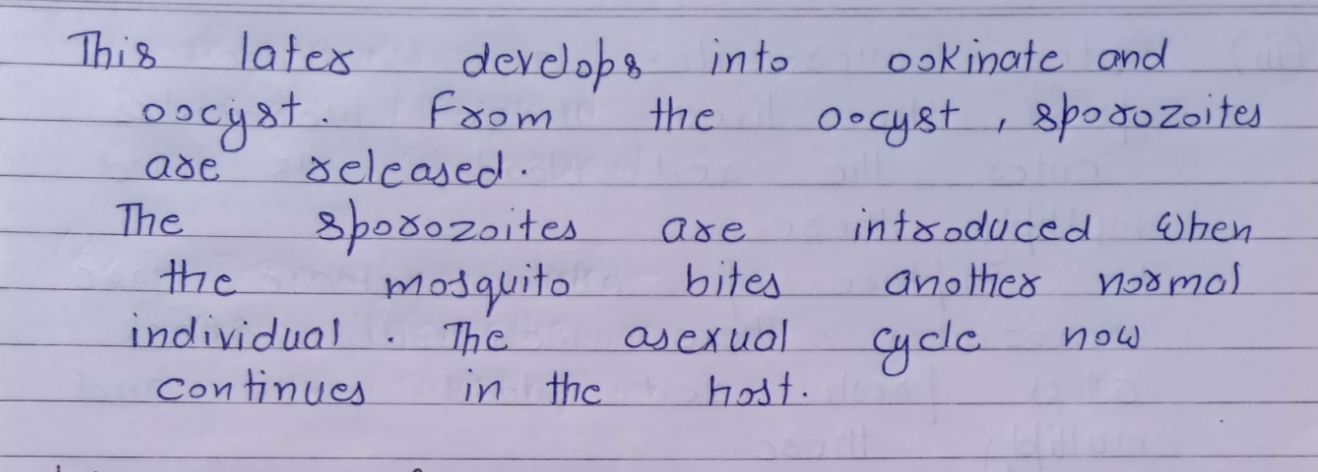 This later develops into ookinate and
oocyst. From the oocyst, sporozoites
are released.
The sporozoites are introduced when
the mosquito bites another normal
individual. The asexual cycle now
continues in the host.